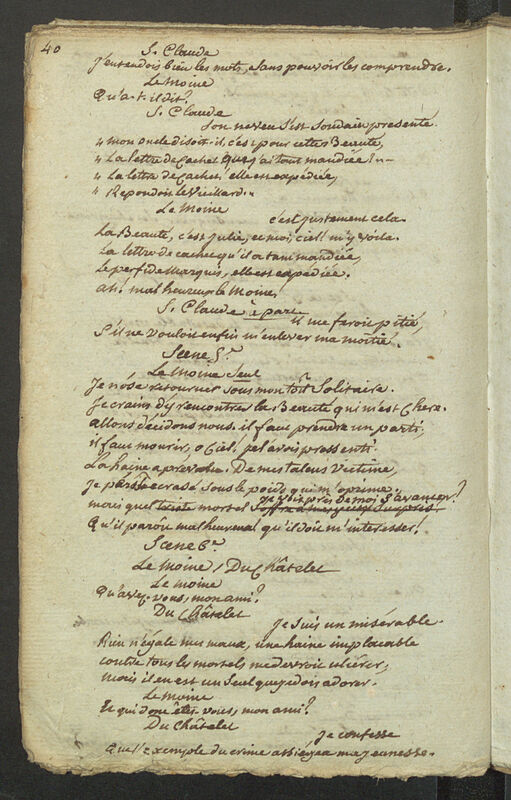 40
S. Claude
J'entendois bien les mots, sans pouvoir les comprendre.
Le Moine
Qu'a-t-il dit?
S. Claude
Son neveu s'est soudain présenté.
" mon oncle disoit-il, c'est pour cette Beauté,
" La lettre de Cachet que j'ai tant mandiée?
" La lettre de Cachet! elle est expédiée,
" Répondoit le Vieillard.
Le Moine
c'est justement cela.
La Beauté, c'est Julie, et moi, ciel! m'y voila.
La lettre de cachet qu'il a tant mandiée,
Le perfide Marquis, elle est expédiée.
ah! malheureux le Moine,
S. Claude à part
il me feroit pitié,
S'il ne vouloit enfin m'enlever ma moitié.
Scene 5e.
Le Moine Seul
Je n'ose retourner sous mon toît Solitaire.
Je crains d'y rencontrer la Beauté qui m'est chere.
allons décidons nous. il faut prendre un parti,
il faut mourir, o Ciel! je l'avois pressenti.
La haine a De mes talens victime,
Je écrasé sous le poids qui m'opprime.
mais quel mortel je vois près de moi s'avancer?
Qu'il paroît malheureux! qu'il doit m'intéresser!
Scene 6e.
Le Moine, Du Châtelet
Le Moine
Qu'avez-vous, mon ami?
Du Châtelet
Je suis un misérable.
Rien n'égale mes maux, une haine implacable
contre tous les mortels me devroit ulcérer,
mais il en est un seul que je dois adorer.
Le Moine
Et qui donc êtes vous, mon ami?
Du Châtelet
Je confesse
Que l'exemple du crime assiégea ma jeunesse.